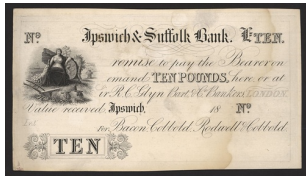 Nº Ipswich & Suffolk Bank. £TEN.
romise to pay the Bearer on
emand TEN POUNDS, here or at
ir R. C. Glyn Bart. & Cº Bankers LONDON.
Value received Ipswich, 18 Nº
For Bacon Cobbold, Rodwell & Cobbold.
TEN